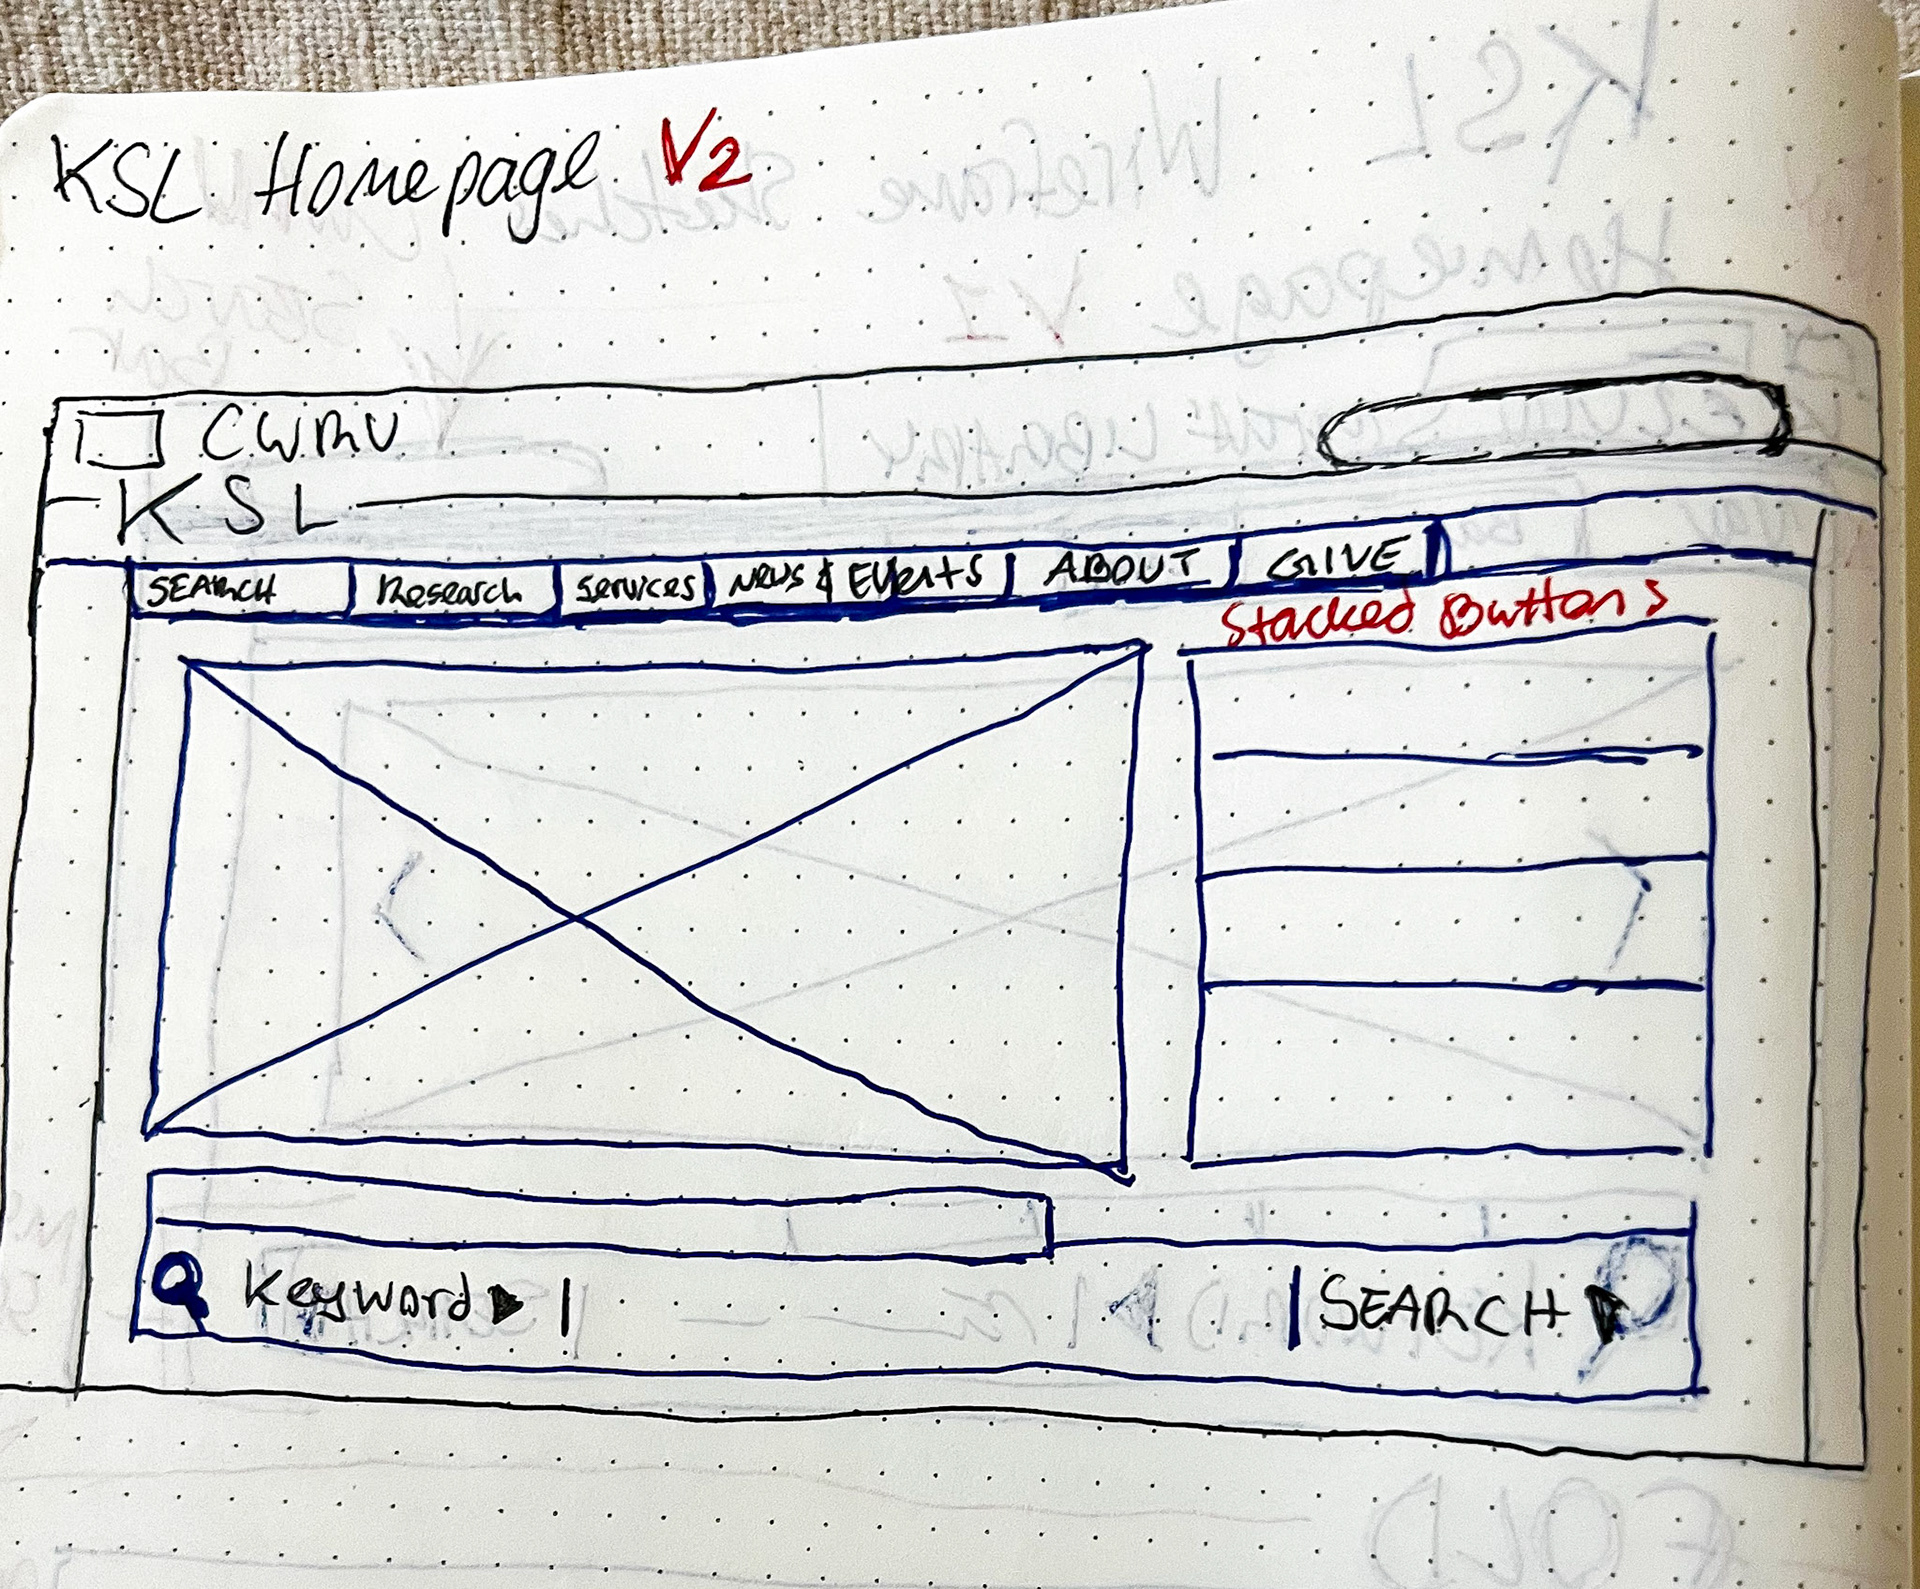 KSL Homepage V2
CWRU
KSL
SEARCH Research Services NEWS & EVENTS ABOUT GIVE
Stacked Buttons
Keyword | | SEARCH